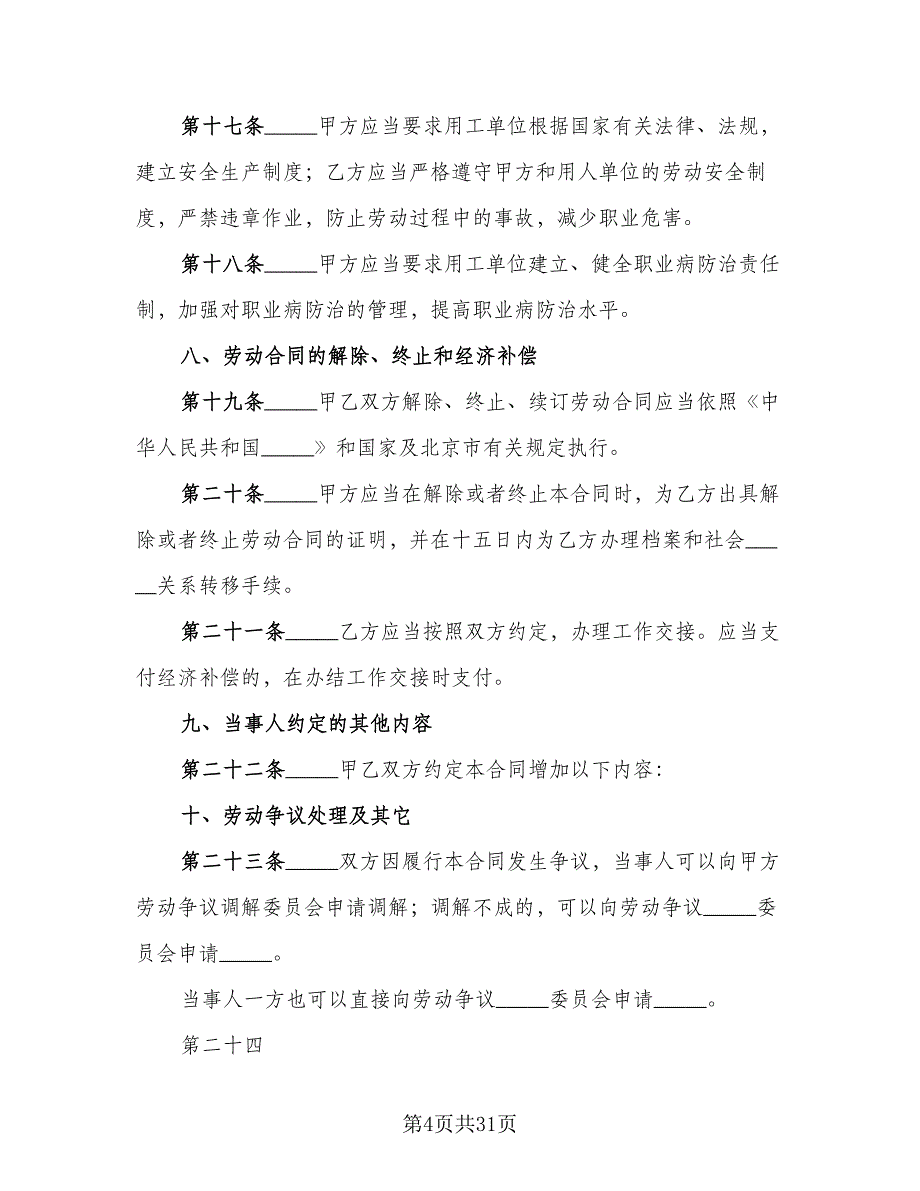 第十七条_____甲方应当要求用工单位根据国家有关法律、法规，
建立安全生产制度；乙方应当严格遵守甲方和用人单位的劳动安全制
度，严禁违章作业，防止劳动过程中的事故，减少职业危害。
第十八条_____甲方应当要求用工单位建立、健全职业病防治责任
制，加强对职业病防治的管理，提高职业病防治水平。
八、劳动合同的解除、终止和经济补偿
第十九条_____甲乙双方解除、终止、续订劳动合同应当依照《中
华人民共和国_____》和国家及北京市有关规定执行。
第二十条_____甲方应当在解除或者终止本合同时，为乙方出具解
除或者终止劳动合同的证明，并在十五日内为乙方办理档案和社会___
__关系转移手续。
第二十一条_____乙方应当按照双方约定，办理工作交接。应当支
付经济补偿的，在办结工作交接时支付。
九、当事人约定的其他内容
第二十二条_____甲乙双方约定本合同增加以下内容：
十、劳动争议处理及其它
第二十三条_____双方因履行本合同发生争议，当事人可以向甲方
劳动争议调解委员会申请调解；调解不成的，可以向劳动争议_____委
员会申请_____。
当事人一方也可以直接向劳动争议_____委员会申请_____。
第二十四
第4页共31页